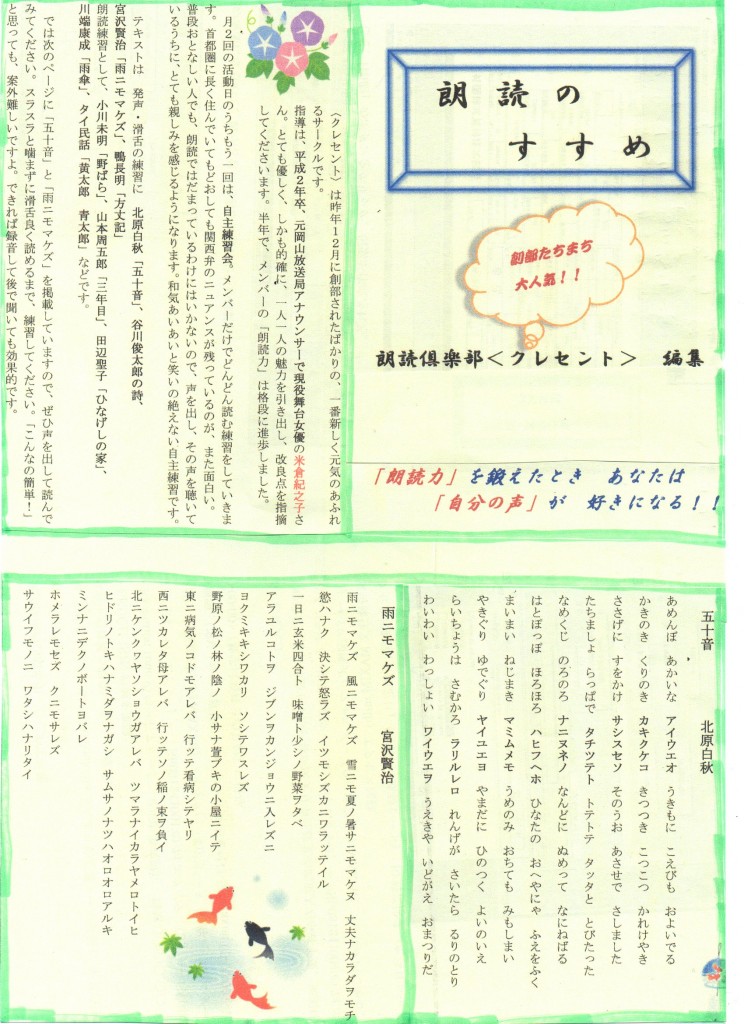 朗読の
すすめ
創部たちまち
大人気！！
朗読倶楽部＜クレセント＞　編集
「朗読力」を鍛えたとき　あなたは
「自分の声」が　好きになる！！
〈クレセント〉は昨年１２月に創部されたばかりの、一番新しく元気のあふれ
るサークルです。
指導は、平成２年卒、元岡山放送局アナウンサーで現役舞台女優の米倉紀之子さ
ん。とても優しく、しかも的確に、一人一人の魅力を引き出し、改良点を指摘
してくださいます。半年で、メンバーの「朗読力」は格段に進歩しました。
月２回の活動日のうちもう一回は、自主練習会。メンバーだけでどんどん読む練習をしていきま
す。首都圏に長く住んでいてもどおしても関西弁のニュアンスが残っているのが、また面白い。
普段おとなしい人でも、朗読ではだまっているわけにはいかないので、声を出し、その声を聴いて
いるうちに、とても親しみを感じるようになります。和気あいあいと笑いの絶えない自主練習です。
テキストは　発声・滑舌の練習に　北原白秋「五十音」、谷川俊太郎の詩、
宮沢賢治「雨ニモマケズ」、鴨長明「方丈記」
朗読練習として、小川未明「野ばら」、山本周五郎「三年目」、田辺聖子「ひなげしの家」、
川端康成「雨傘」、タイ民話「黄太郎　青太郎」などです。
では次のページに「五十音」と「雨ニモマケズ」を掲載していますので、ぜひ声を出して読んで
みてください。スラスラと噛まずに滑舌良く読めるまで、練習してください。「こんなの簡単！」
と思っても、案外難しいですよ。できれば録音して後で聞いても効果的です。
五十音　　　北原白秋
あめんぼ　あかいな　アイウエオ　うきもに　こえびも　およいでる
かきのき　くりのき　カキクケコ　きつつき　こつこつ　かれけやき
ささげに　すをかけ　サシスセソ　そのうお　あさせで　さしました
たちましょ　らっぱで　タチツテト　トテトテ　タッタと　とびたった
なめくじ　のろのろ　ナニヌネノ　なんどに　ぬめって　なにねばる
はとぽっぽ　ほろほろ　ハヒフヘホ　ひなたの　おへやにゃ　ふえをふく
まいまい　ねじまき　マミムメモ　うめのみ　おちても　みもしまい
やきぐり　ゆでぐり　ヤイユエヨ　やまだに　ひのつく　よいのいえ
らいちょうは　さむかろ　ラリルレロ　れんげが　さいたら　るりのとり
わいわい　わっしょい　ワイウエヲ　うえきや　いどがえ　おまつりだ
雨ニモマケズ　　　宮沢賢治
雨ニモマケズ　風ニモマケズ　雪ニモ夏ノ暑サニモマケヌ　丈夫ナカラダヲモチ
慾ハナク　決シテ怒ラズ　イツモシズカニワラッテイル
一日ニ玄米四合ト　味噌ト少シノ野菜ヲタベ
アラユルコトヲ　ジブンヲカンジョウニ入レズニ
ヨクミキキシワカリ　ソシテワスレズ
野原ノ松ノ林ノ陰ノ　小サナ萱ブキの小屋ニイテ
東ニ病気ノコドモアレバ　行ッテ看病シテヤリ
西ニツカレタ母アレバ　行ッテソノ稲ノ束ヲ負イ
北ニケンクヮヤソショウガアレバ　ツマラナイカラヤメロトイヒ
ヒドリノトキハナミダヲナガシ　サムサノナツハオロオロアルキ
ミンナニデクノボートヨバレ
ホメラレモセズ　クニモサレズ
サウイフモノニ　ワタシハナリタイ